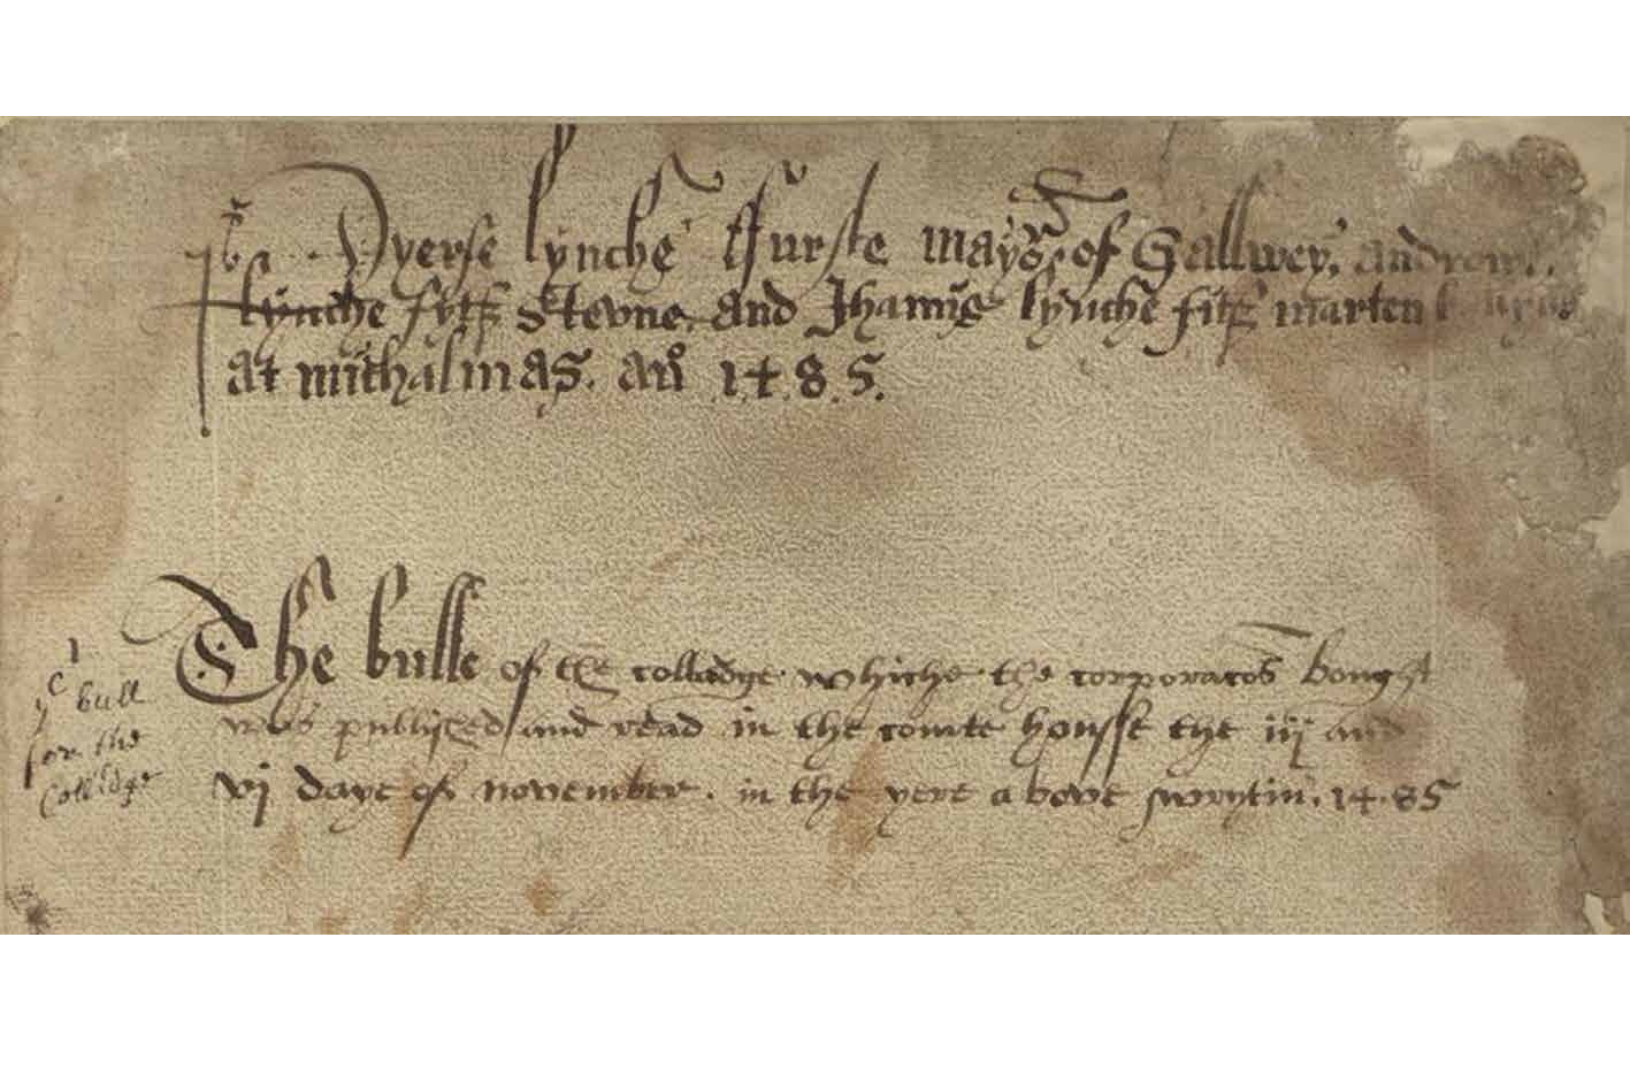 Pyerse lynche ffurste mayor of Gallwey, androwe
lynche fytz Stevne, and Jhamys lynche fitz marten
at mithalmas. ano 1485.
The bulle of the colladge whiche the corporacōs bought
was publyshed and read in the comte housse the iij and
vj daye of november. in the yere above wrytin. 1485
ye bull
for the
Colledge